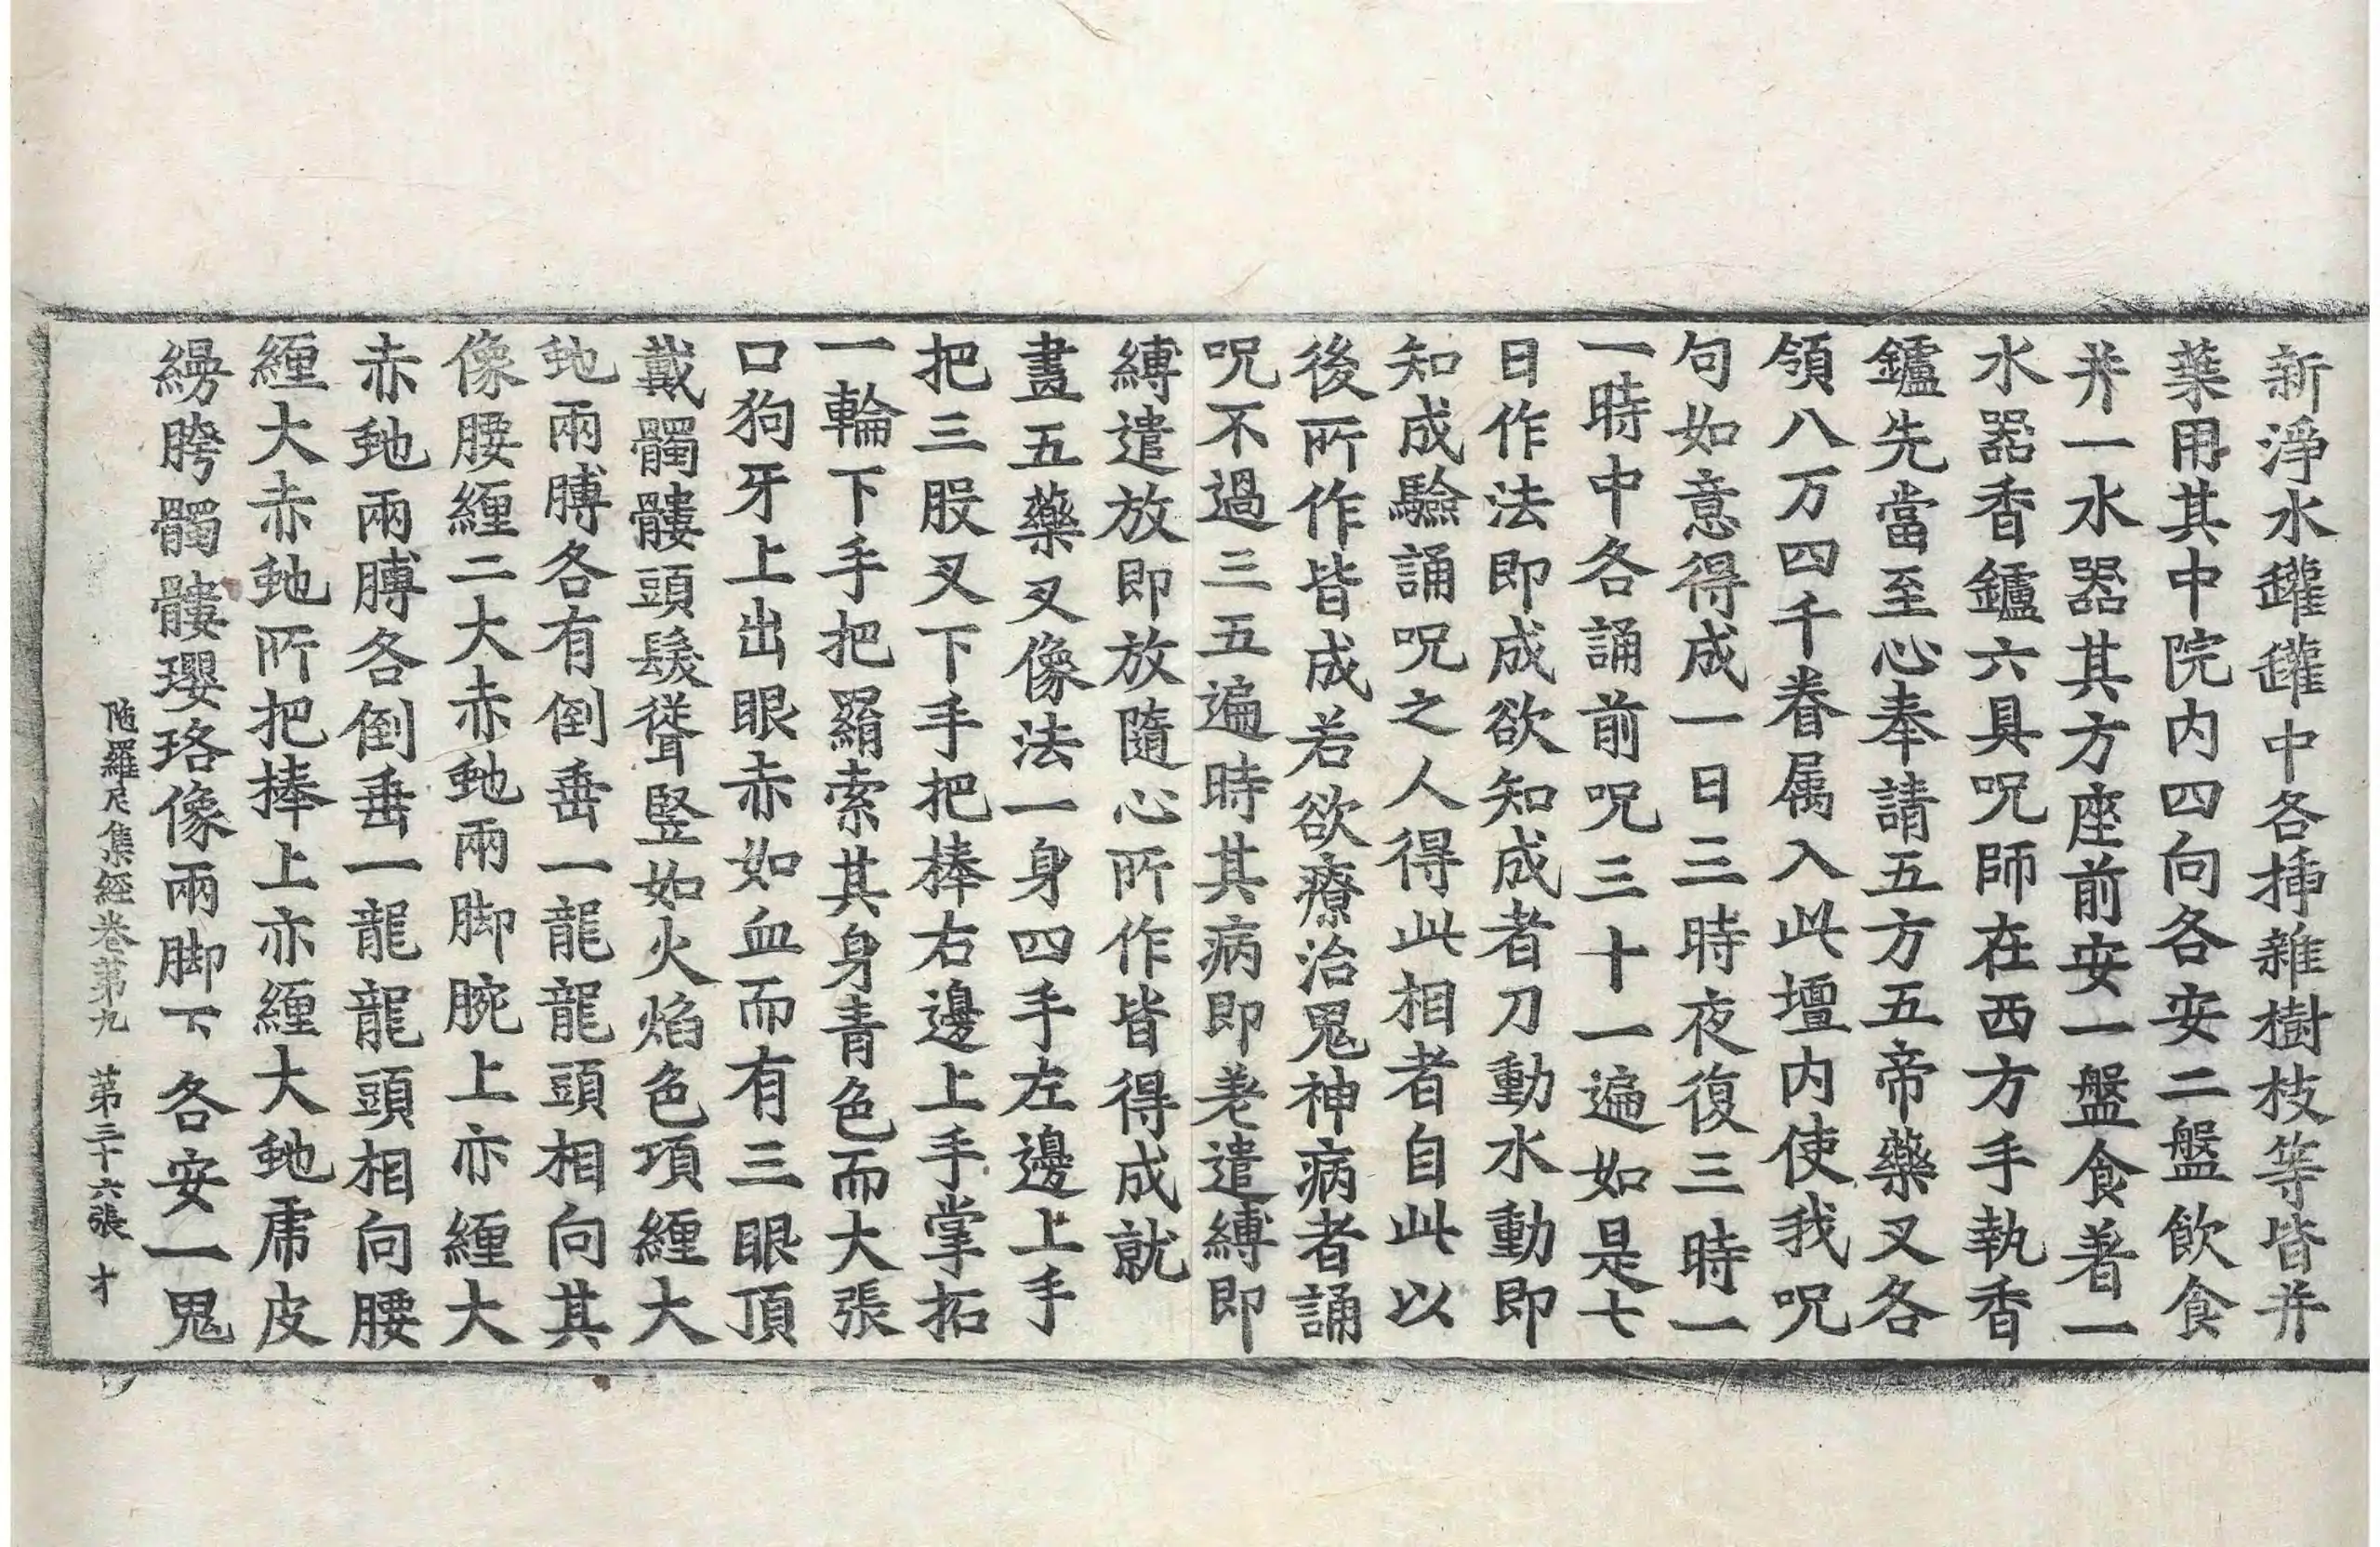 新淨水罐罐中各揷雜樹枝等皆并
葉用其中院内四向各安二盤飲食
并一水器其方座前安一盤食著一
水器香鑪六具呪師在西方手執香
鑪先當至心奉請五方五帝藥叉各
領八万四千眷属入此壇内使我呪
句如意得成一日三時夜復三時一
一時中各誦前呪三十一遍如是七
日作法即成欲知成者刀動水動即
知成驗誦呪之人得此相者自此以
後所作皆成若欲療治鬼神病者誦
呪不過三五遍時其病即差遣縛即
縛遣放即放隨心所作皆得成就
畫五藥叉像法一身四手左邊上手
把三股叉下手把棒右邊上手掌拓
一輪下手把羂索其身青色而大張
口狗牙上出眼赤如血而有三眼頂
戴髑髏頭髮聳竪如火焰色項纏大
虵兩膊各有倒垂一龍龍頭相向其
像腰纏二大赤虵兩脚腕上亦纏大
赤虵兩膊各倒垂一龍龍頭相向腰
纏大赤虵所把捧上亦纏大虵虎皮
縵胯髑髏瓔珞像兩脚下各安一鬼
陁羅尼集經卷第九 第三十六張 才